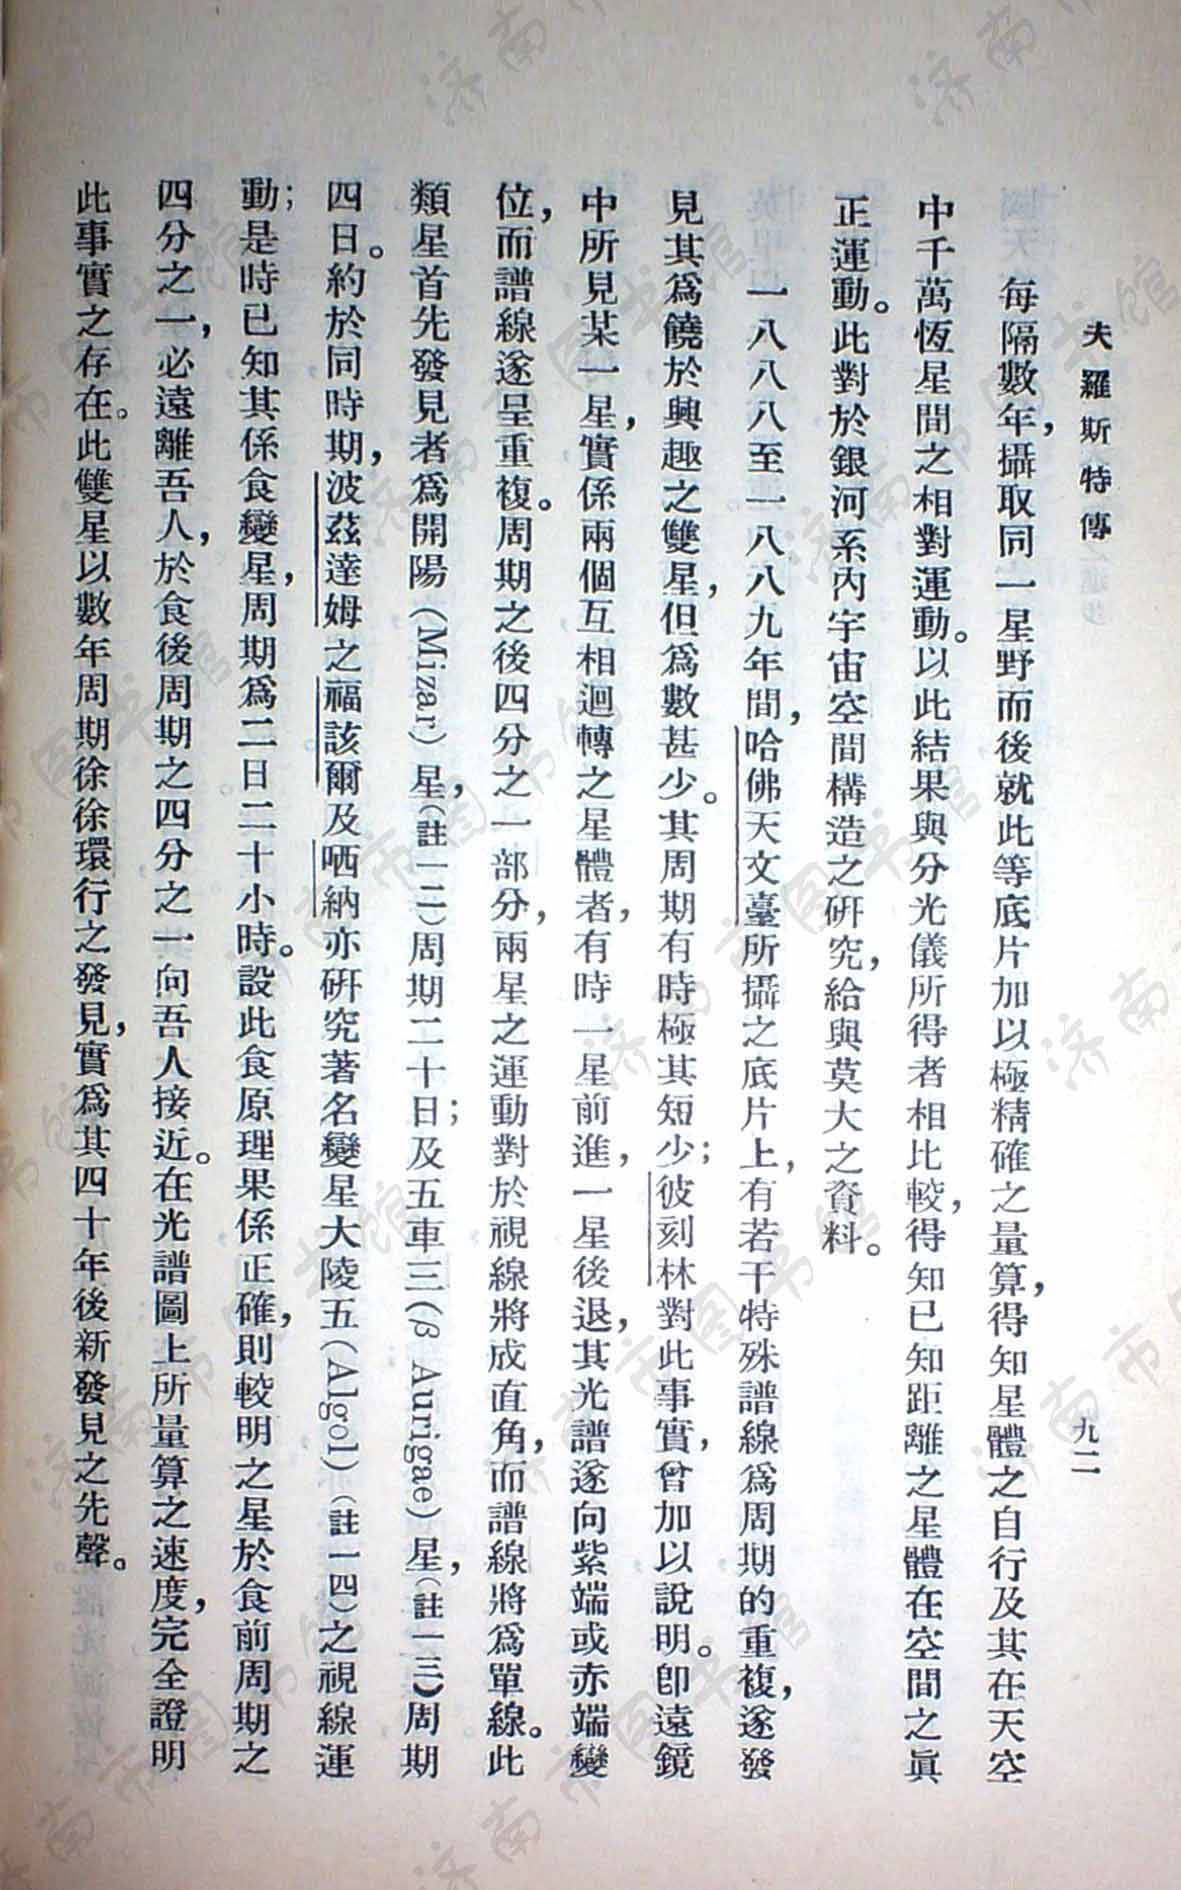 夫羅斯特傳
九二
每隔數年，攝取同一星野而後就此等底片加以極精確之量算，得知星體之自行及其在天空
中千萬恆星間之相對運動。以此結果與分光儀所得者相比較，得知已知距離之星體在空間之眞
正運動。此對於銀河系內宇宙空間構造之研究，給與莫大之資料。
一八八八至一八八九年間，哈佛天文臺所攝之底片上，有若干特殊譜線爲周期的重複，遂發
見其爲饒於興趣之雙星，但爲數甚少。其周期有時極其短少；彼刻林對此事實，曾加以說明。卽遠鏡
中所見某一星，實係兩個互相迴轉之星體者，有時一星前進，一星後退，其光譜遂向紫端或赤端變
位，而譜線遂呈重複。周期之後四分之一部分，兩星之運動對於視線將成直角，而譜線將爲單線。此
類星首先發見者爲開陽（Mizar）星，（註一二）周期二十日；及五車三（β Aurigae）星，（註一三）周期
四日。約於同時期，波茲達姆之福該爾及哂納亦研究著名變星大陵五（Algol）（註一四）之視線運
動；是時已知其係食變星，周期爲二日二十小時。設此食原理果係正確，則較明之星於食前周期之
四分之一，必遠離吾人，於食後周期之四分之一向吾人接近。在光譜圖上所量算之速度，完全證明
此事實之存在。此雙星以數年周期徐徐環行之發見，實爲其四十年後新發見之先聲。
济南市图书馆